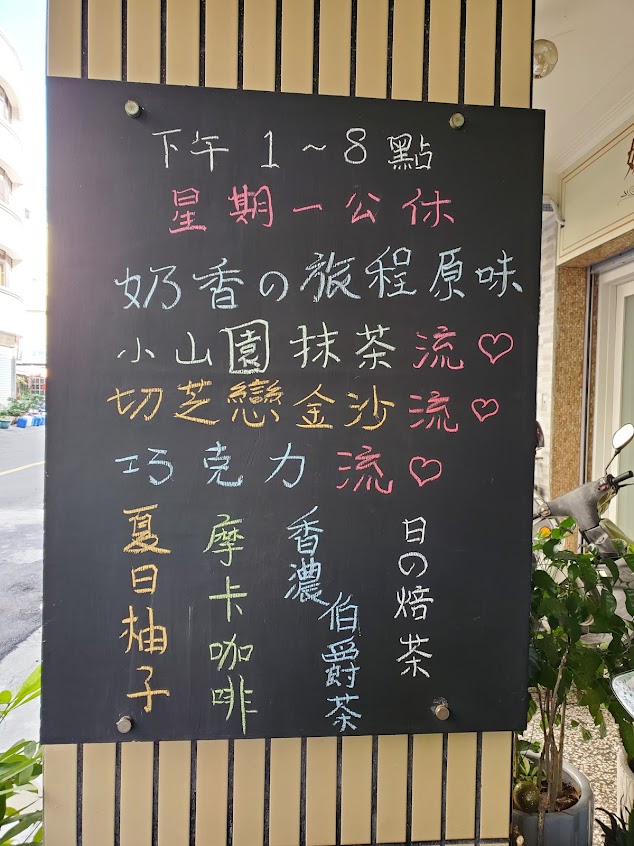 下午 1~8 點
星期一公休
奶香の旅程原味
小山園抹茶流♡
切芝戀金沙流♡
巧克力流♡
日の焙茶
香濃伯爵茶
摩卡咖啡
夏日柚子